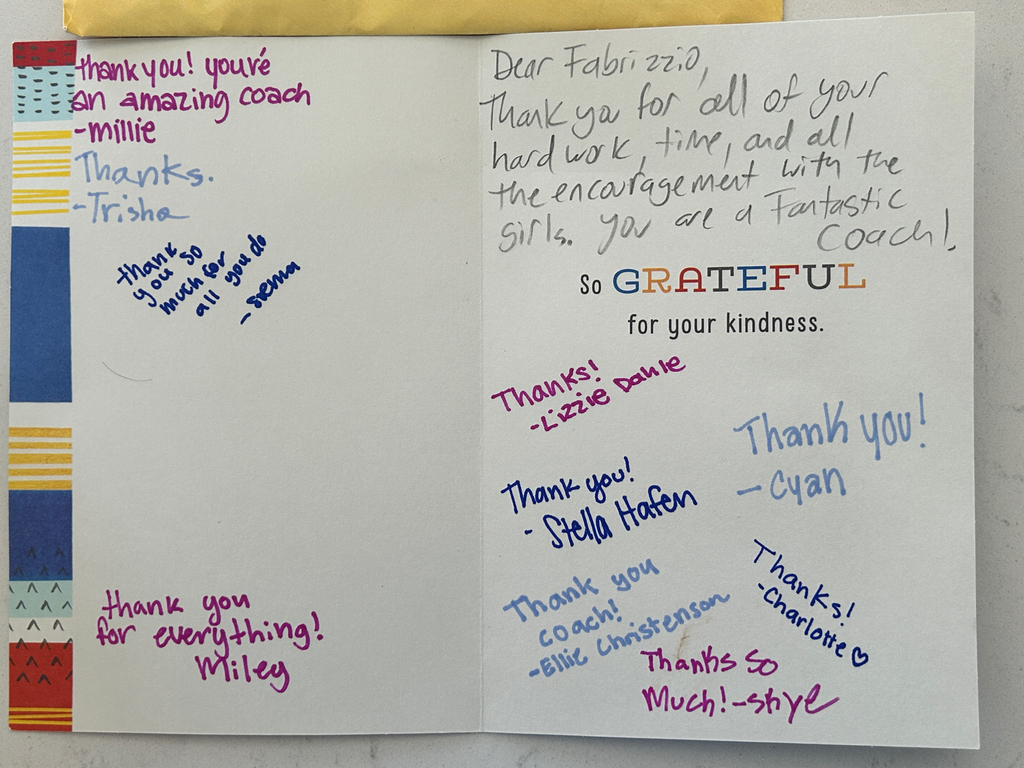 thank you! you're
an amazing coach
-millie
Thanks.
-Trisha
thank
you so
much for
all you do
thank you
for everything!
Miley
Dear Fabrizzio,
Thank you for all of your
hard work, time, and all
the encouragement with the
girls. You are a Fantastic
Coach!.
So GRATEFUL
for your kindness.
Thanks!
-Lizzie Dahle
Thank you!
-Cyan
Thank you!
- Stella Hafen
Thanks!
-Charlotte ♡
Thank you
coach!
-Ellie Christenson
Thanks so
Much!-